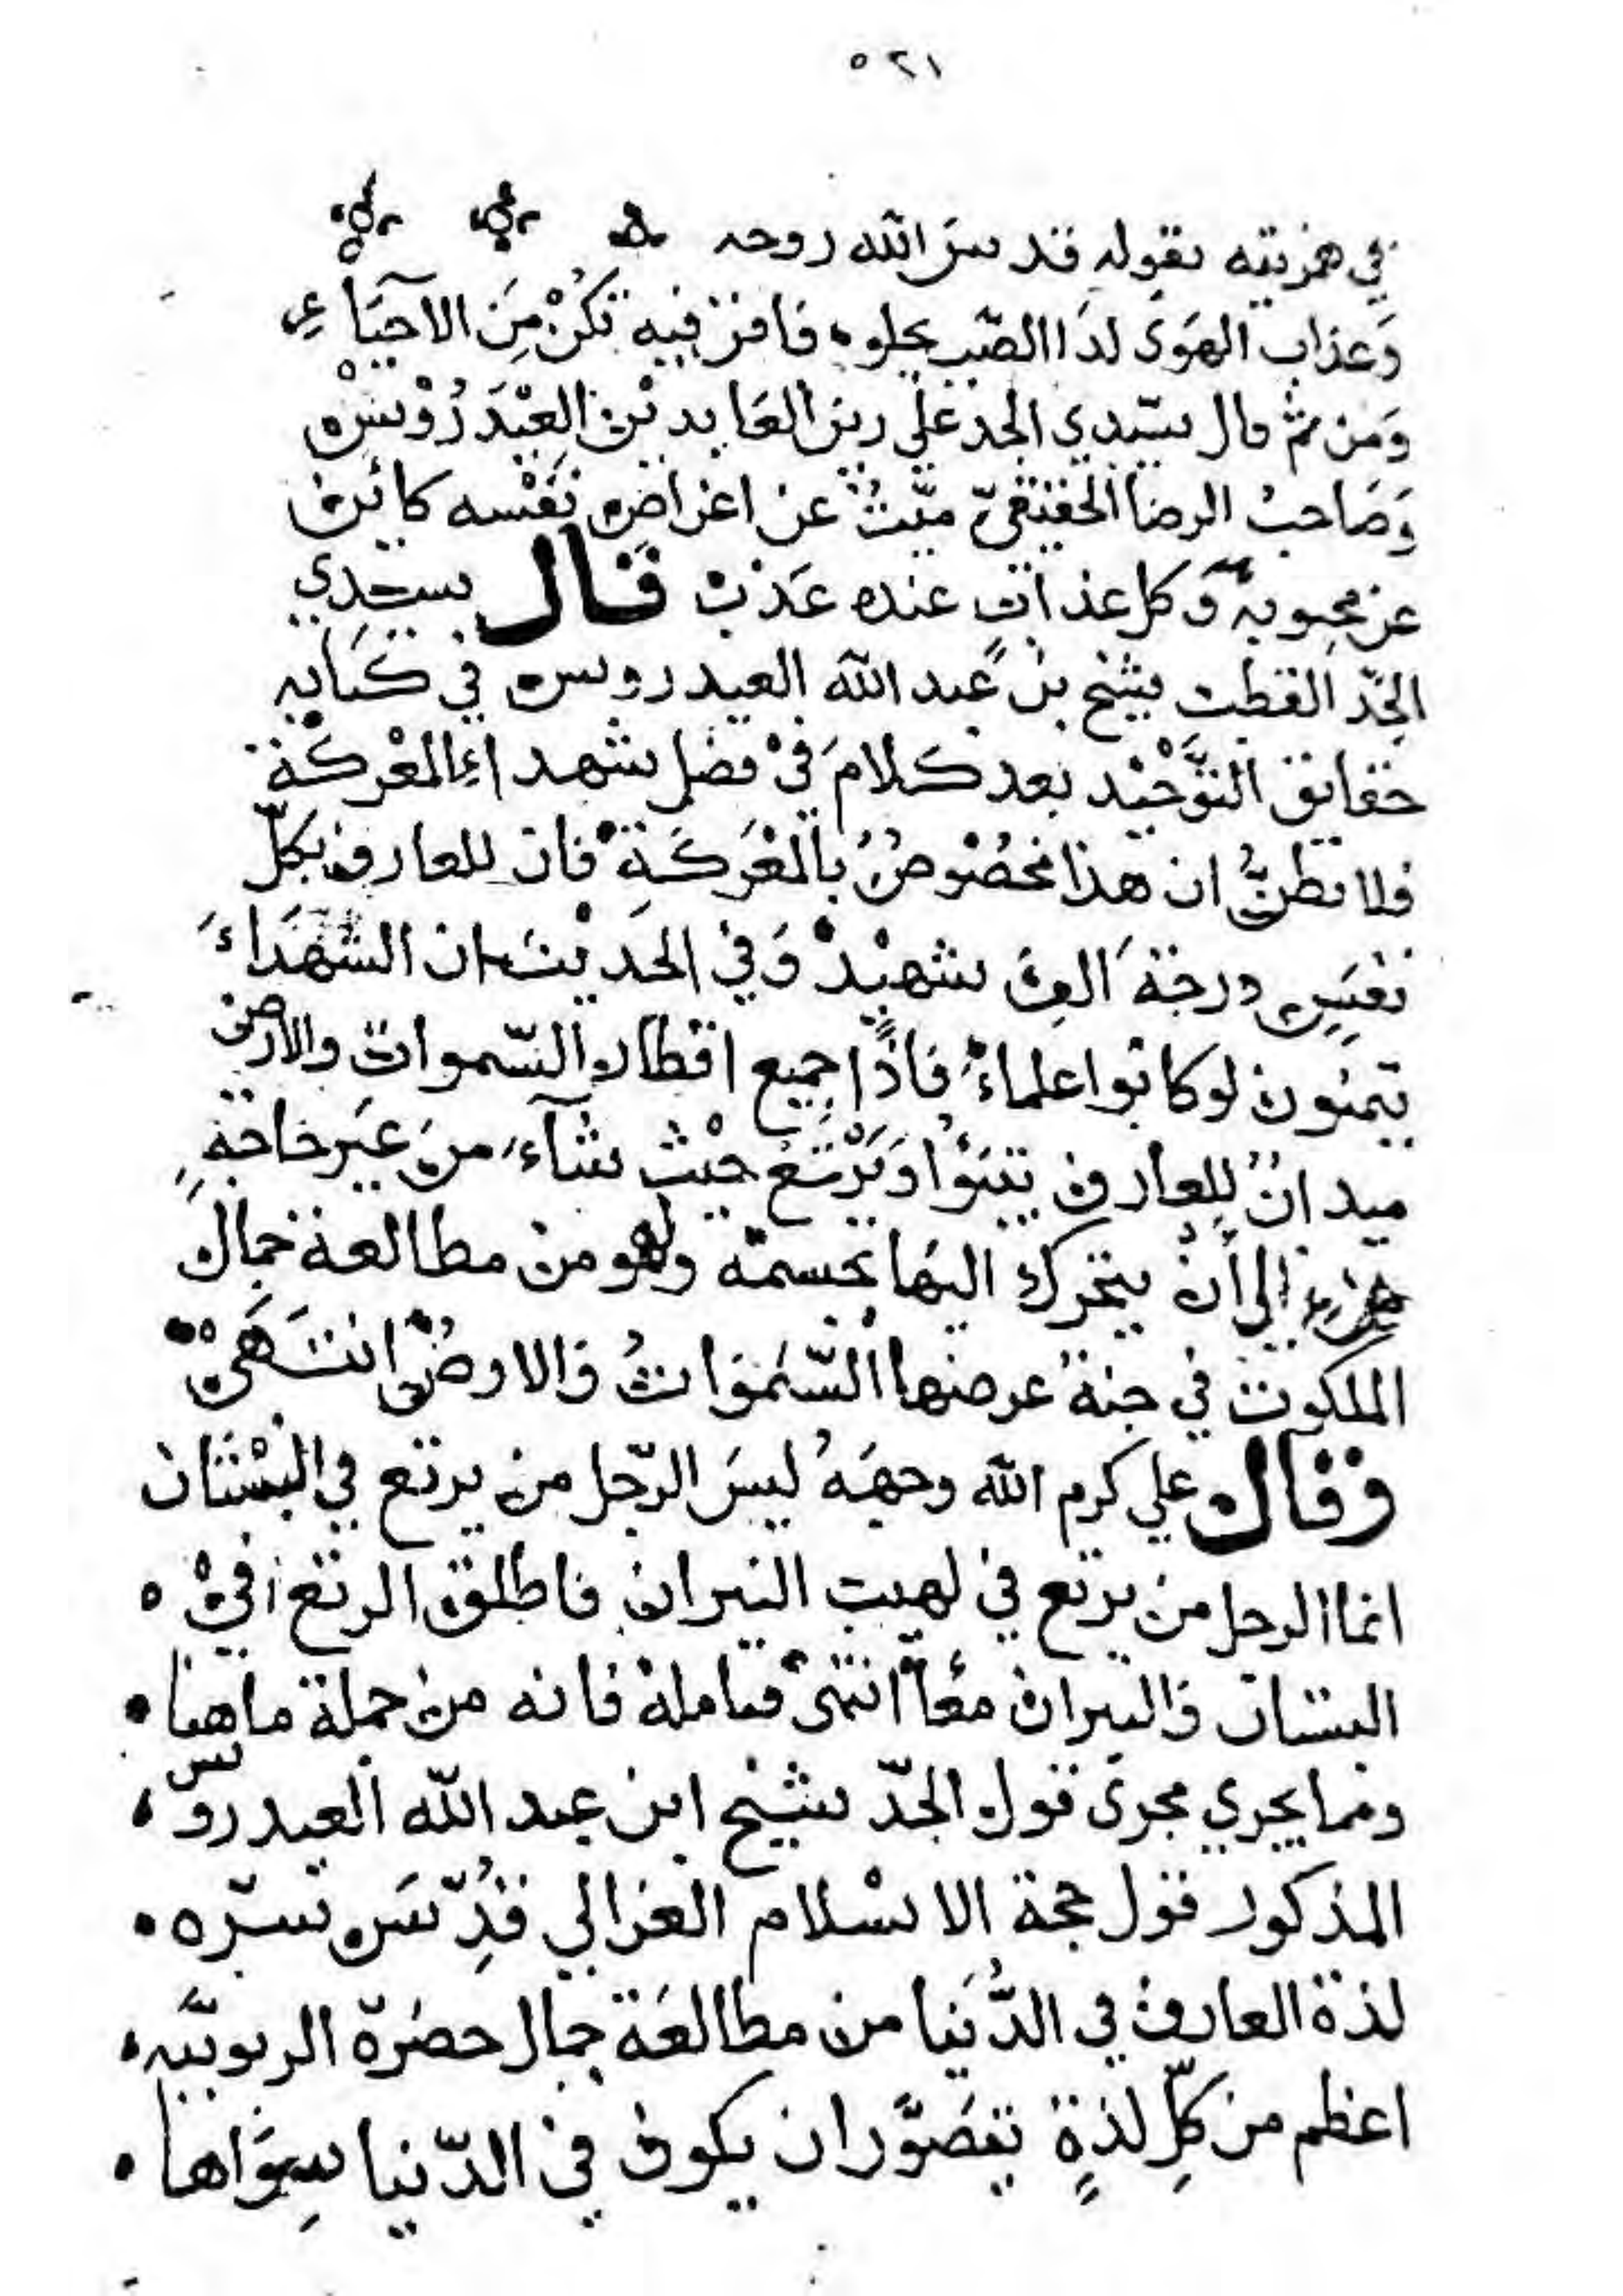 ٥٢١
في همزيته بقوله قدس الله روحه
وَعذاب الهَوَى لدَا الصّب يحلو فافن فيه تكُنْ مِنَ الاحيَآءِ
وَمن ثمّ قال سيّدي الجد علي زين العَابدين العِيْدَرُوْسْ
وَصَاحبُ الرضا الحقيقيّ ميّتٌ عن اغراض نَفْسه كائن
عن محبوبه وَكل عذاب عنده عَذْبٌ قال سيدي
الجدّ القطب شيخ بنْ عبد الله العيدروس في كتابه
حقايق التَّوْحيْد بعد كَلامَ فيْ فضل شهداءِ المعْركة
فلا تظنُّ ان هذا مخصُوصٌ بالمعْرَكَةِ فان للعارف بكلّ
نفَسٍ درجَة الف شهيْدٌ وَفي الحَديث ان الشهَداءَ
يتمنون لوكانوا علماءً فاذًا جميع اقطار السّموات والارض
ميدانٌ لِلعارف يتبَوُّا وَيَرْتَعُ حيْث شآءَ من غير حاجةٍ
الى أنْ يتحرك اليها بجسمه وَهو من مطالعة جمال
الملكوت في جنة عرضها السَّموَاتُ وَالارضُ انتهَىْ
وقال علي كرم الله وجهَهُ ليسَ الرّجل من يرتع في البسْتان
انما الرجل من يرتع في لهيب النيران فاطلق الرتع فيْ
البستان وَالنيران معًا انتهىْ فتامله فانه من جملة ما هنا
ومما يجري مجرى قول الجدّ شيخ ابن عبد الله العيدروس
المذكور قول حجة الاسْلام الغزالي قُدِّسَ سرّه
لذة العارف في الدُّنيا من مطالعَة جمال حضرَة الربوبيَّه
اعظم من كلِّ لذةٍ يتصَوَّر ان يكون في الدّنيا سِوَاها